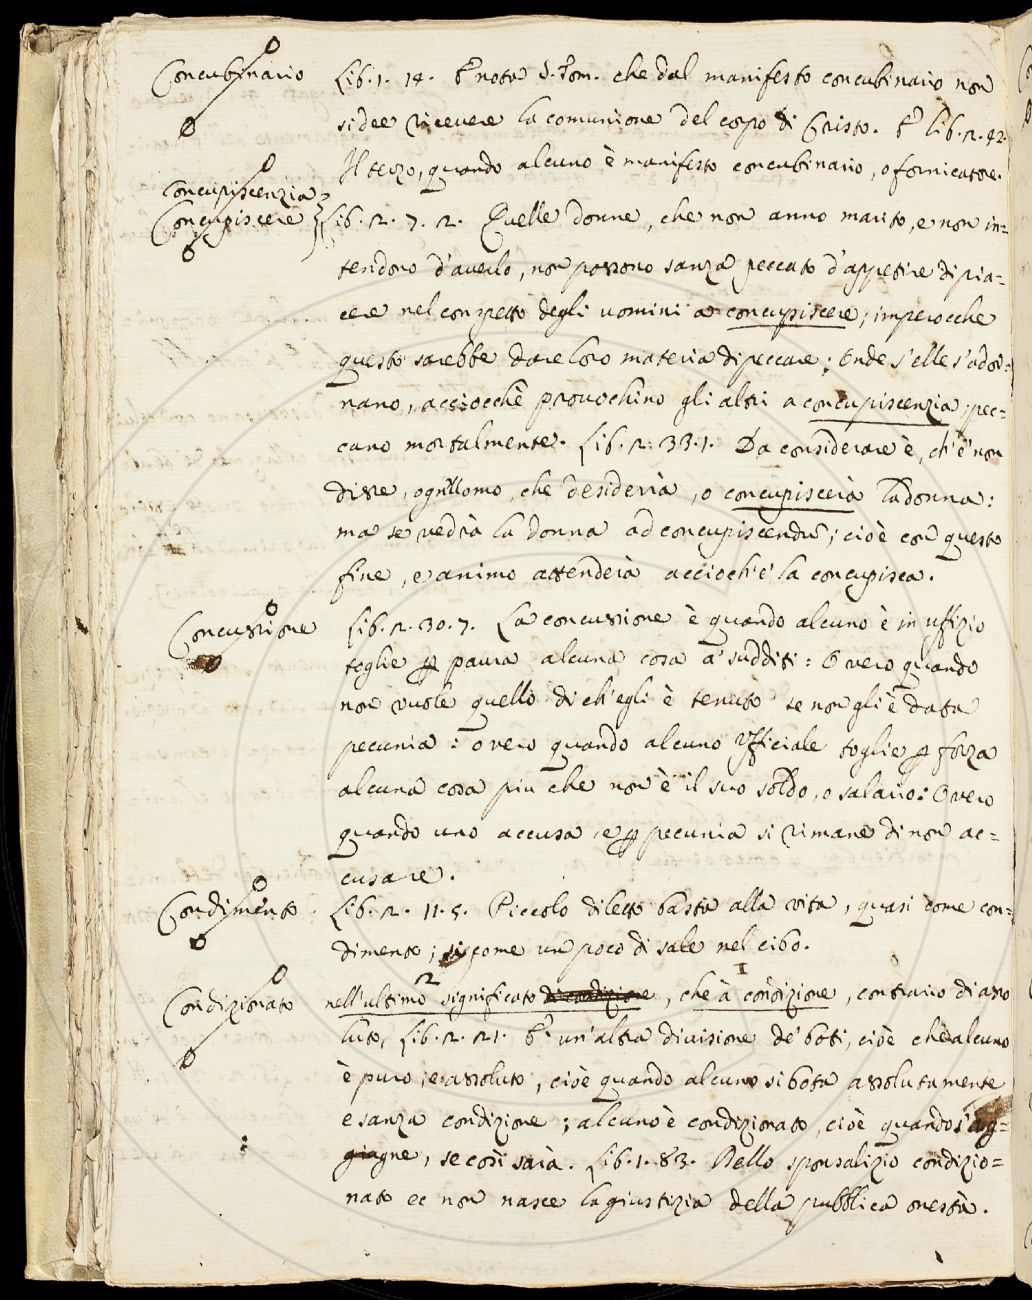 Concubinario Lib. 1. 14. E nota S. Tom. che dal manifesto concubinario non
si dee ricevere la comunione del corpo di Cristo. E lib. 2. 42.
Il terzo, quando alcuno è manifesto concubinario, o fornicatore.
Concupiscenzia
Concupiscere Lib. 2. 7. 2. Quelle donne, che non anno marito, e non in=
tendono d'averlo, non possono sanza peccato d'appetire di pia=
cere nel conspetto degli uomini a concupiscere, imperocche
questo sarebbe dare loro materia di peccare; Onde s'elle s'ador=
nano, acciocchè provochino gli altri a concupiscenzia, pec=
cano mortalmente. Lib. 2. 33. 1. Da considerare è, ch'e' non
disse, ogn'Uomo, che desiderrà, o concupiscerà la donna:
ma se vedrà la donna ad concupiscendũ; cioè con questo
fine, e animo attenderà accioch'e' la concupisca.
Concussione Lib. 2. 30. 7. La concussione è quando alcuno è in uffizio
toglie p paura alcuna cosa a' sudditi: Overo quando
non vuole quello di ch'egli è tenuto se non gli è data
pecunia: overo quando alcuno Ufficiale toglie p forza
alcuna cosa piu che non è il suo soldo, o salario: Overo
quando uno accusa, e p pecunia si rimane di non ac=
cusare.
Condimento Lib. 2. 11. 5. Piccolo diletto basta alla vita, quasi come con=
dimento; sicome un poco di sale nel cibo.
Condizionato nell'ultimo 2 significato di condizione, che à 1 condizione, contrario di asso
luto, Lib. 2. 21. E un'altra divisione de' boti, cioè che alcuno
è puro, e assoluto, cioè quando alcuno si bota assolutamente
e sanza condizione; alcuno è condizionato, cioè quando s'ag=
giugne, se così sarà. Lib. 1. 83. Dello sponsalizio condizio=
nato ec non nasce la giustizia della pubblica onestà.